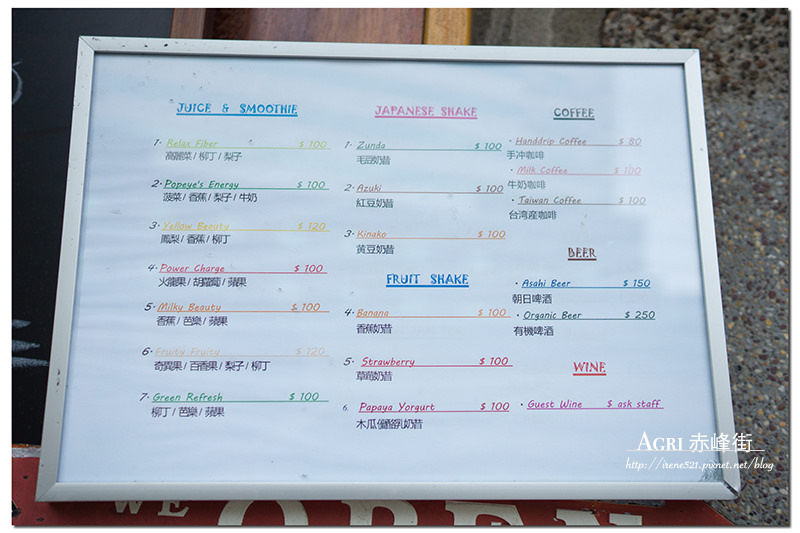 JUICE & SMOOTHIE
1. Relax Fiber $ 100
高麗菜 / 柳丁 / 梨子
2. Popeye's Energy $ 100
菠菜 / 香蕉 / 梨子 / 牛奶
3. Yellow Beauty $ 120
鳳梨 / 香蕉 / 柳丁
4. Power Charge $ 100
火龍果 / 胡蘿蔔 / 蘋果
5. Milky Beauty $ 100
香蕉 / 芭樂 / 蘋果
6. Fruity Fruity $ 120
奇異果 / 百香果 / 梨子 / 柳丁
7. Green Refresh $ 100
柳丁 / 芭樂 / 蘋果
JAPANESE SHAKE
1. Zunda $ 100
毛豆奶昔
2. Azuki $ 100
紅豆奶昔
3. Kinako $ 100
黃豆奶昔
FRUIT SHAKE
4. Banana $ 100
香蕉奶昔
5. Strawberry $ 100
草莓奶昔
6. Papaya Yorgurt $ 100
木瓜優酪乳奶昔
COFFEE
・Handdrip Coffee $ 80
手冲咖啡
・Milk Coffee $ 100
牛奶咖啡
・Taiwan Coffee $ 100
台湾產咖啡
BEER
・Asahi Beer $ 150
朝日啤酒
・Organic Beer $ 250
有機啤酒
WINE
・Guest Wine $ ask staff
AGRI 赤峰街
http://irene521.pixnet.net/blog
WE OPEN